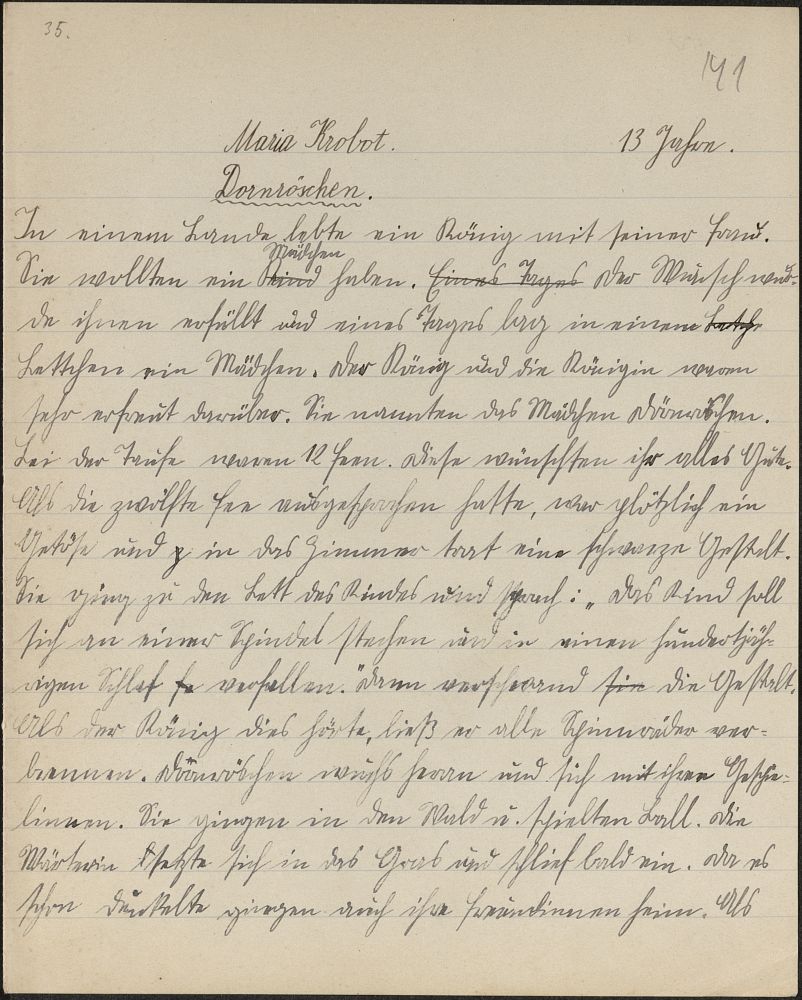 35.
141
Maria Krobot. 13 Jahre.
Dornröschen.
In einem Lande lebte ein König mit seiner Frau.
Mädchen
Sie wollten ein Kind haben. Eines Tages Der Wunsch wur-
de ihnen erfüllt und eines Tages lag in einem
Bettchen ein Mädchen. Der König und die Königin waren
sehr erfreut darüber. Sie nannten das Mädchen Dornröschen.
Bei der Taufe waren 12 Feen. Diese wünschten ihr alles Gute.
Als die zwölfte Fee ausgesprochen hatte, war plötzlich ein
Getöse und in das Zimmer trat eine schwarze Gestalt.
Sie ging zu den Bett des Kindes und sprach: „Das Kind soll
sich an einer Spindel stechen und in einen hundertjäh-
rigen Schlaf verfallen." Dann verschwand sie die Gestalt.
Als der König dies hörte, ließ er alle Spinnräder ver-
brennen. Dornröschen wuchs heran und sich mit ihren
Sie gingen in den Wald u. spielten Ball. Die
Wärterin setzte sich in das Gras und schlief bald ein. Da es
schon dunkelte gingen auch ihre Freundinnen heim. Als